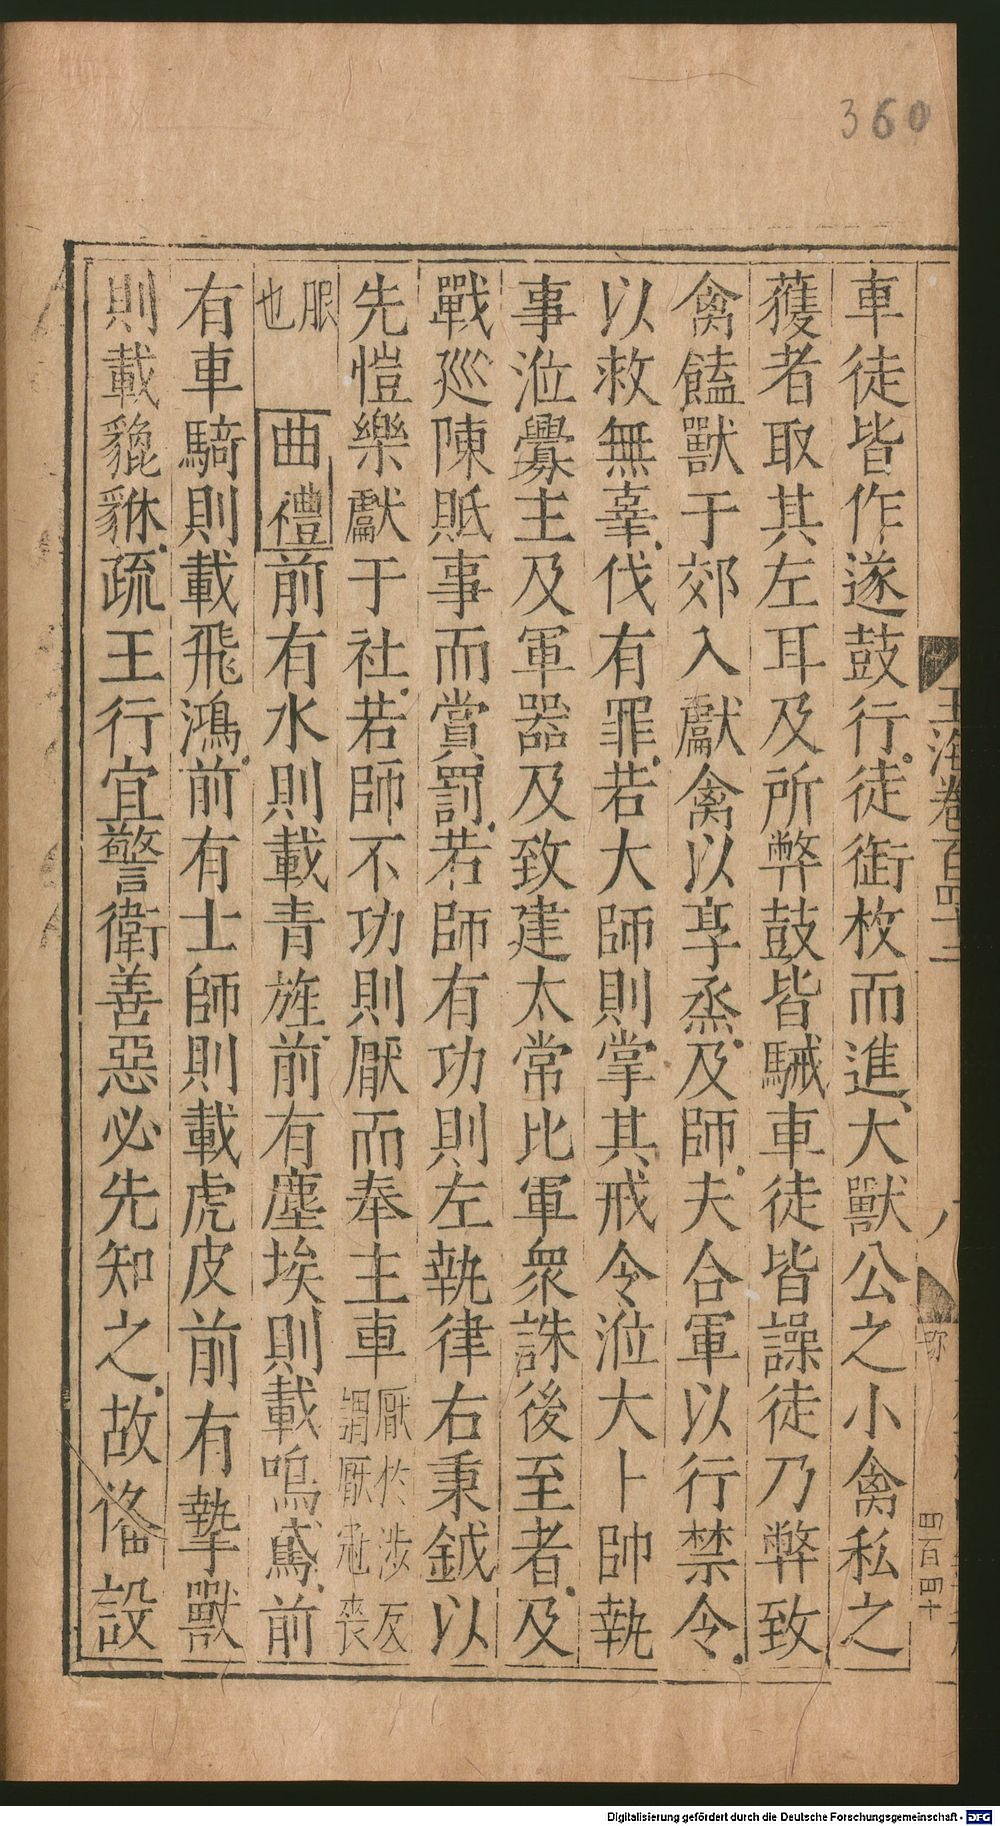 360
車徒皆作遂鼓行徒銜枚而進大獸公之小禽私之
獲者取其左耳及所弊鼓皆駴車徒皆譟徒乃弊致
禽饁獸于郊入獻禽以享烝及師夫合軍以行禁令
以救無辜伐有罪若大師則掌其戒令涖大卜帥執
事涖釁主及軍器及致建太常比軍衆誅後至者及
戰廵陳眡事而賞罰若師有功則左執律右秉鉞以
先愷樂獻于社若師不功則厭而奉主車厭於涉反謂厭冠喪
服也 曲禮前有水則載青旌前有塵埃則載鳴鳶前
有車騎則載飛鴻前有士師則載虎皮前有摯獸
則載貔貅疏王行宜警衛善惡必先知之故俻設
玉海卷百四十二
八
四百四十
Digitalisierung gefördert durch die Deutsche Forschungsgemeinschaft - DFG